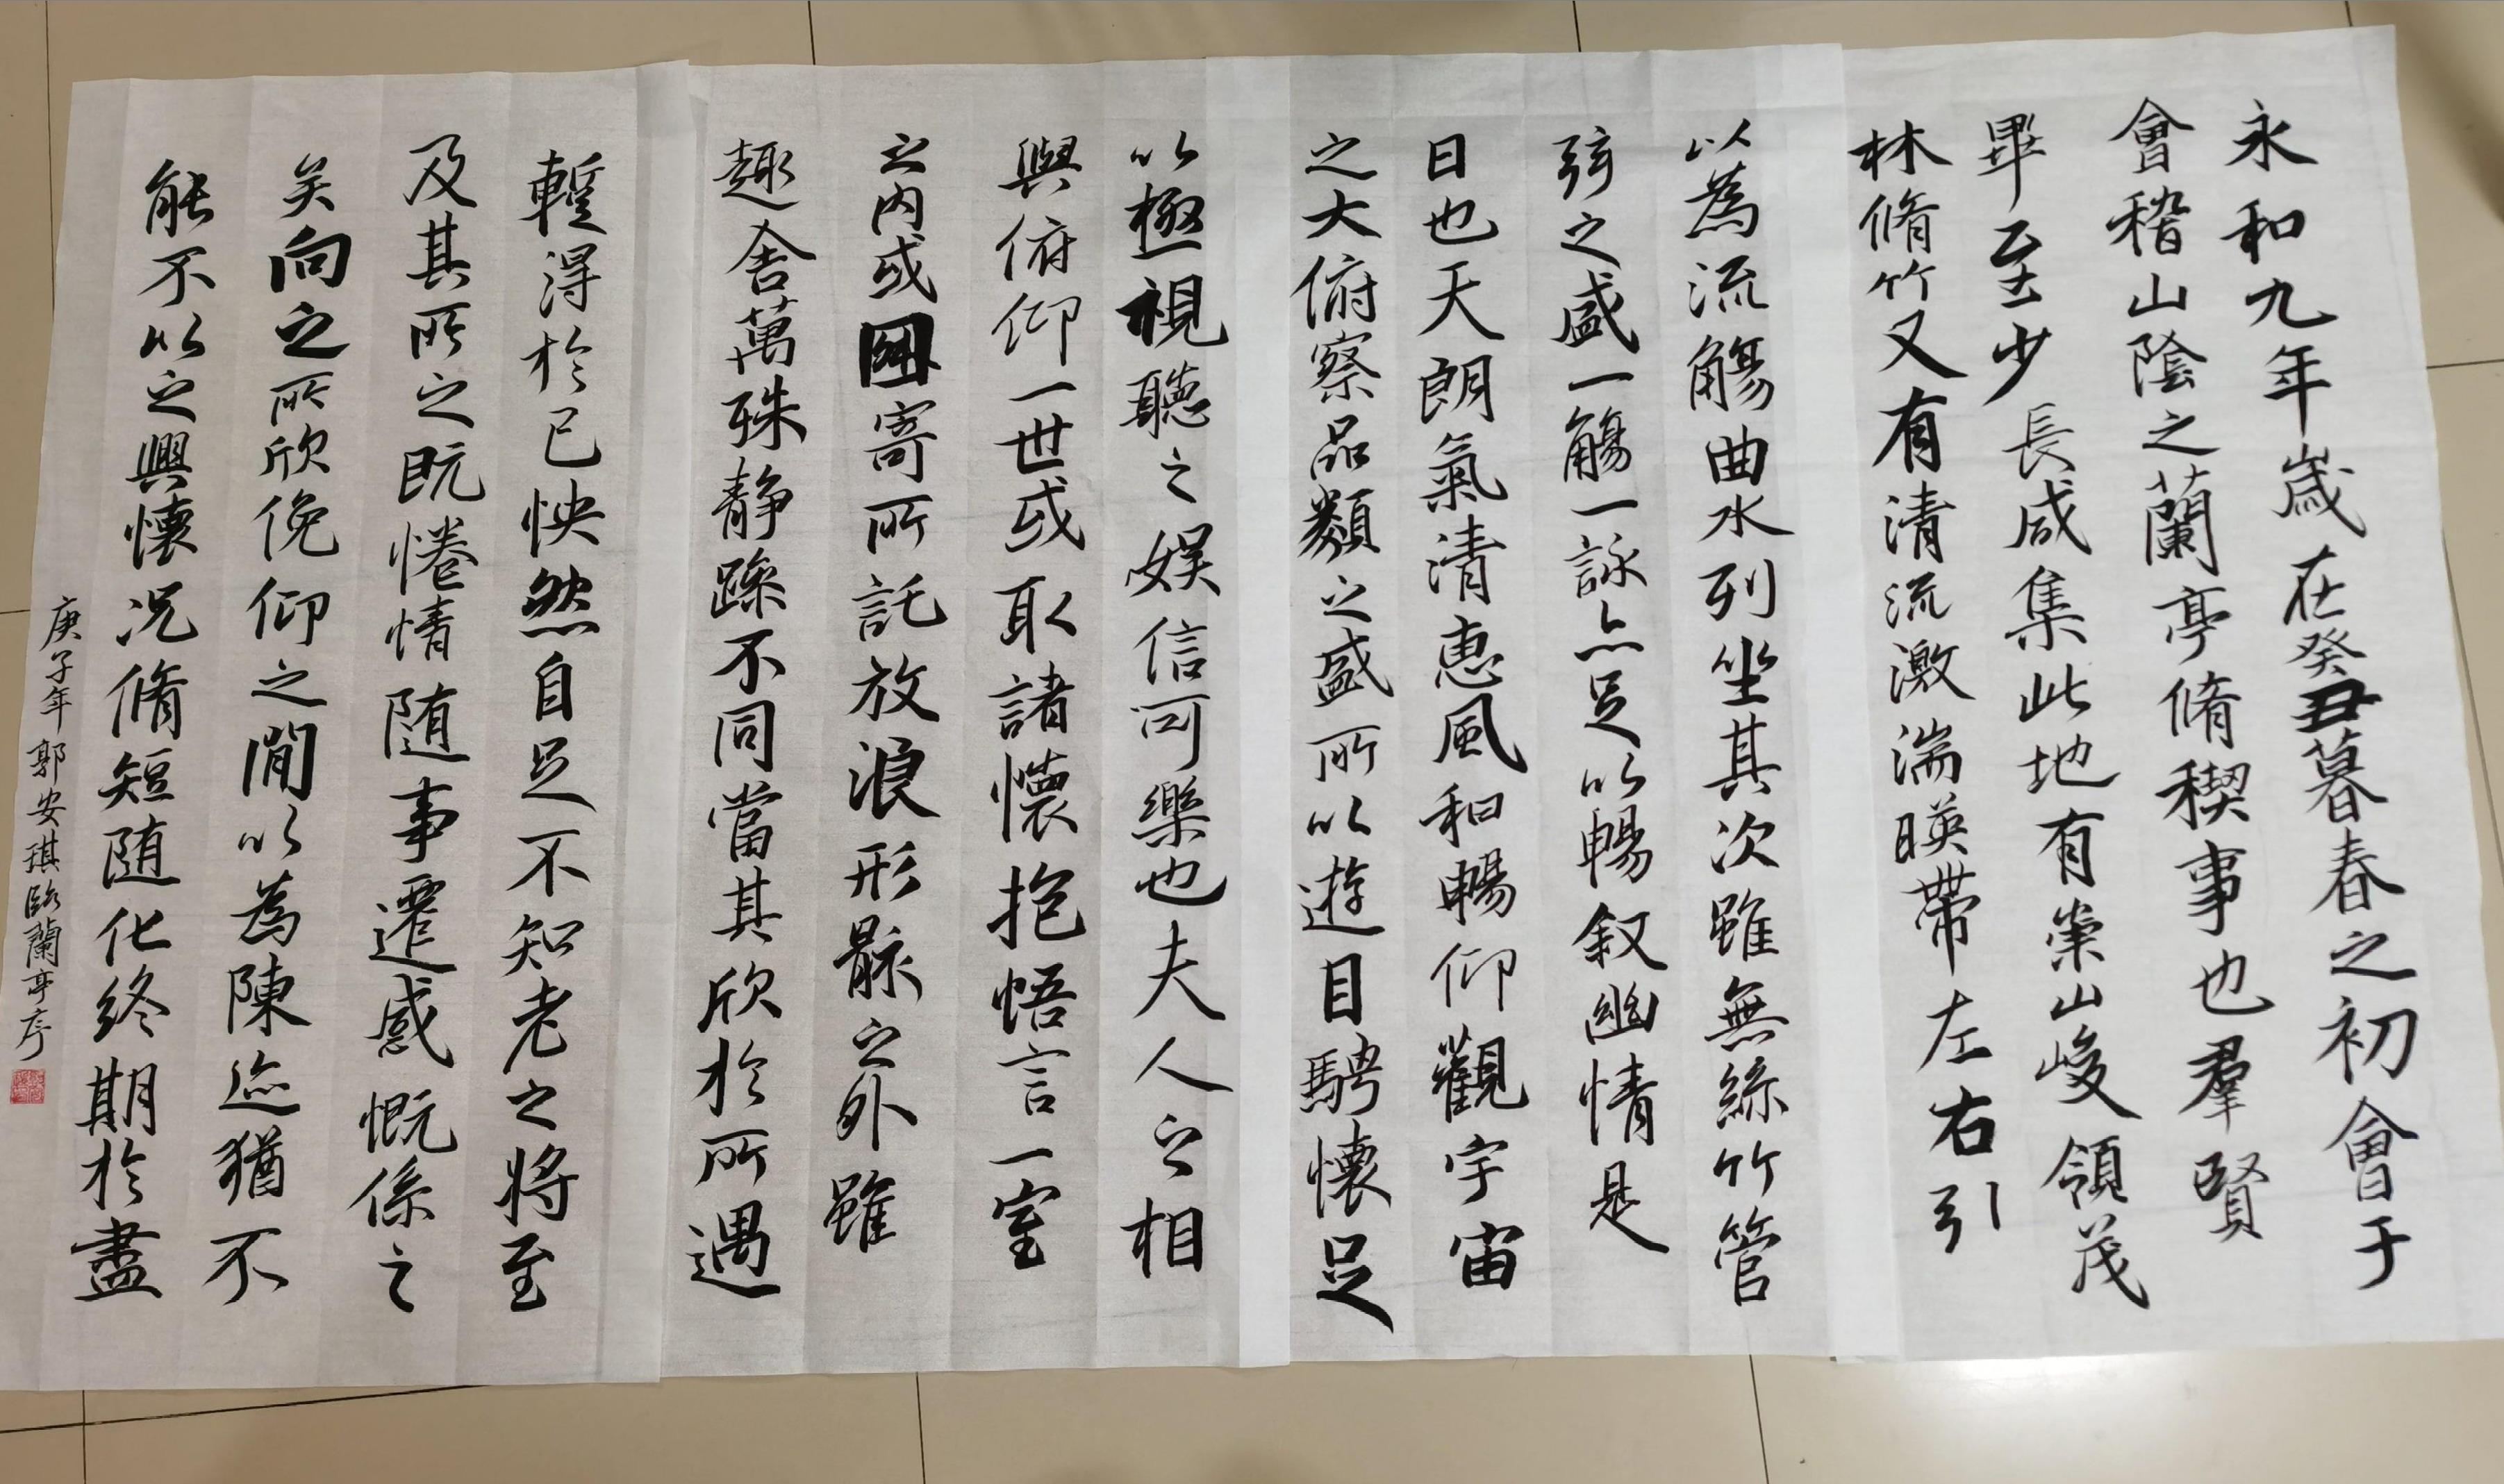 永和九年歲在癸丑暮春之初會于
會稽山陰之蘭亭脩稧事也羣賢
畢至少長咸集此地有崇山峻領茂
林脩竹又有清流激湍暎帶左右引
以為流觴曲水列坐其次雖無絲竹管
弦之盛一觴一詠亦足以暢叙幽情是
日也天朗氣清惠風和暢仰觀宇宙
之大俯察品類之盛所以遊目騁懷足
以極視聽之娛信可樂也夫人之相
與俯仰一世或取諸懷抱悟言一室
之内或因寄所託放浪形骸之外雖
趣舍萬殊静躁不同當其欣於所遇
蹔得於己怏然自足不知老之將至
及其所之既惓情随事遷感慨係之
矣向之所欣俛仰之閒以為陳迹猶不
能不以之興懷況脩短随化終期於盡
庚子年郭安琪臨蘭亭序